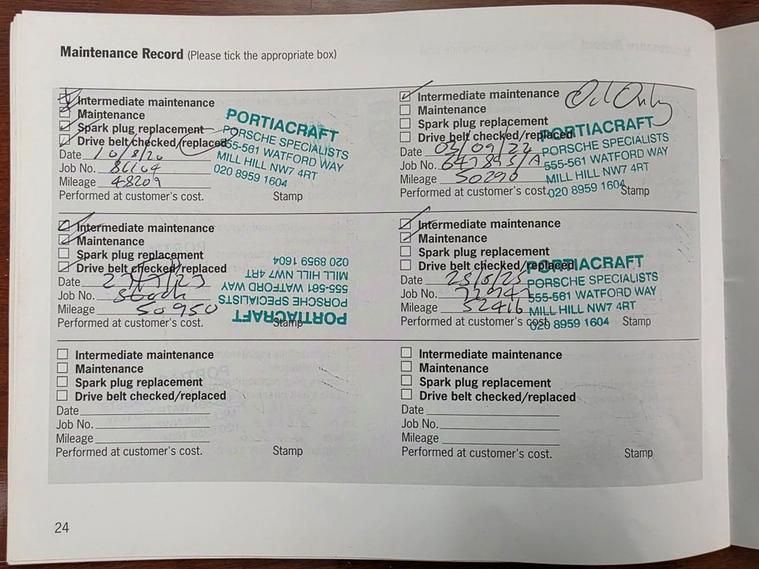 Maintenance Record (Please tick the appropriate box)
Intermediate maintenance
Maintenance
Spark plug replacement
Drive belt checked/replaced
Date 10/8/20
Job No. 86104
Mileage 48209
Performed at customer's cost. Stamp
PORTIACRAFT
PORSCHE SPECIALISTS
555-561 WATFORD WAY
MILL HILL NW7 4RT
020 8959 1604
Intermediate maintenance Oil Only
Maintenance
Spark plug replacement
Drive belt checked/replaced
Date /09/22
Job No.
Mileage 50290
Performed at customer's cost. Stamp
PORTIACRAFT
PORSCHE SPECIALISTS
555-561 WATFORD WAY
MILL HILL NW7 4RT
020 8959 1604
Intermediate maintenance
Maintenance
Spark plug replacement
Drive belt checked/replaced
Date
Job No.
Mileage 50950
Performed at customer's cost. Stamp
PORTIACRAFT
PORSCHE SPECIALISTS
555-561 WATFORD WAY
MILL HILL NW7 4RT
020 8959 1604
Intermediate maintenance
Maintenance
Spark plug replacement
Drive belt checked/replaced
Date
Job No.
Mileage 52416
Performed at customer's cost. Stamp
PORTIACRAFT
PORSCHE SPECIALISTS
555-561 WATFORD WAY
MILL HILL NW7 4RT
020 8959 1604
Intermediate maintenance
Maintenance
Spark plug replacement
Drive belt checked/replaced
Date
Job No.
Mileage
Performed at customer's cost. Stamp
Intermediate maintenance
Maintenance
Spark plug replacement
Drive belt checked/replaced
Date
Job No.
Mileage
Performed at customer's cost. Stamp
24